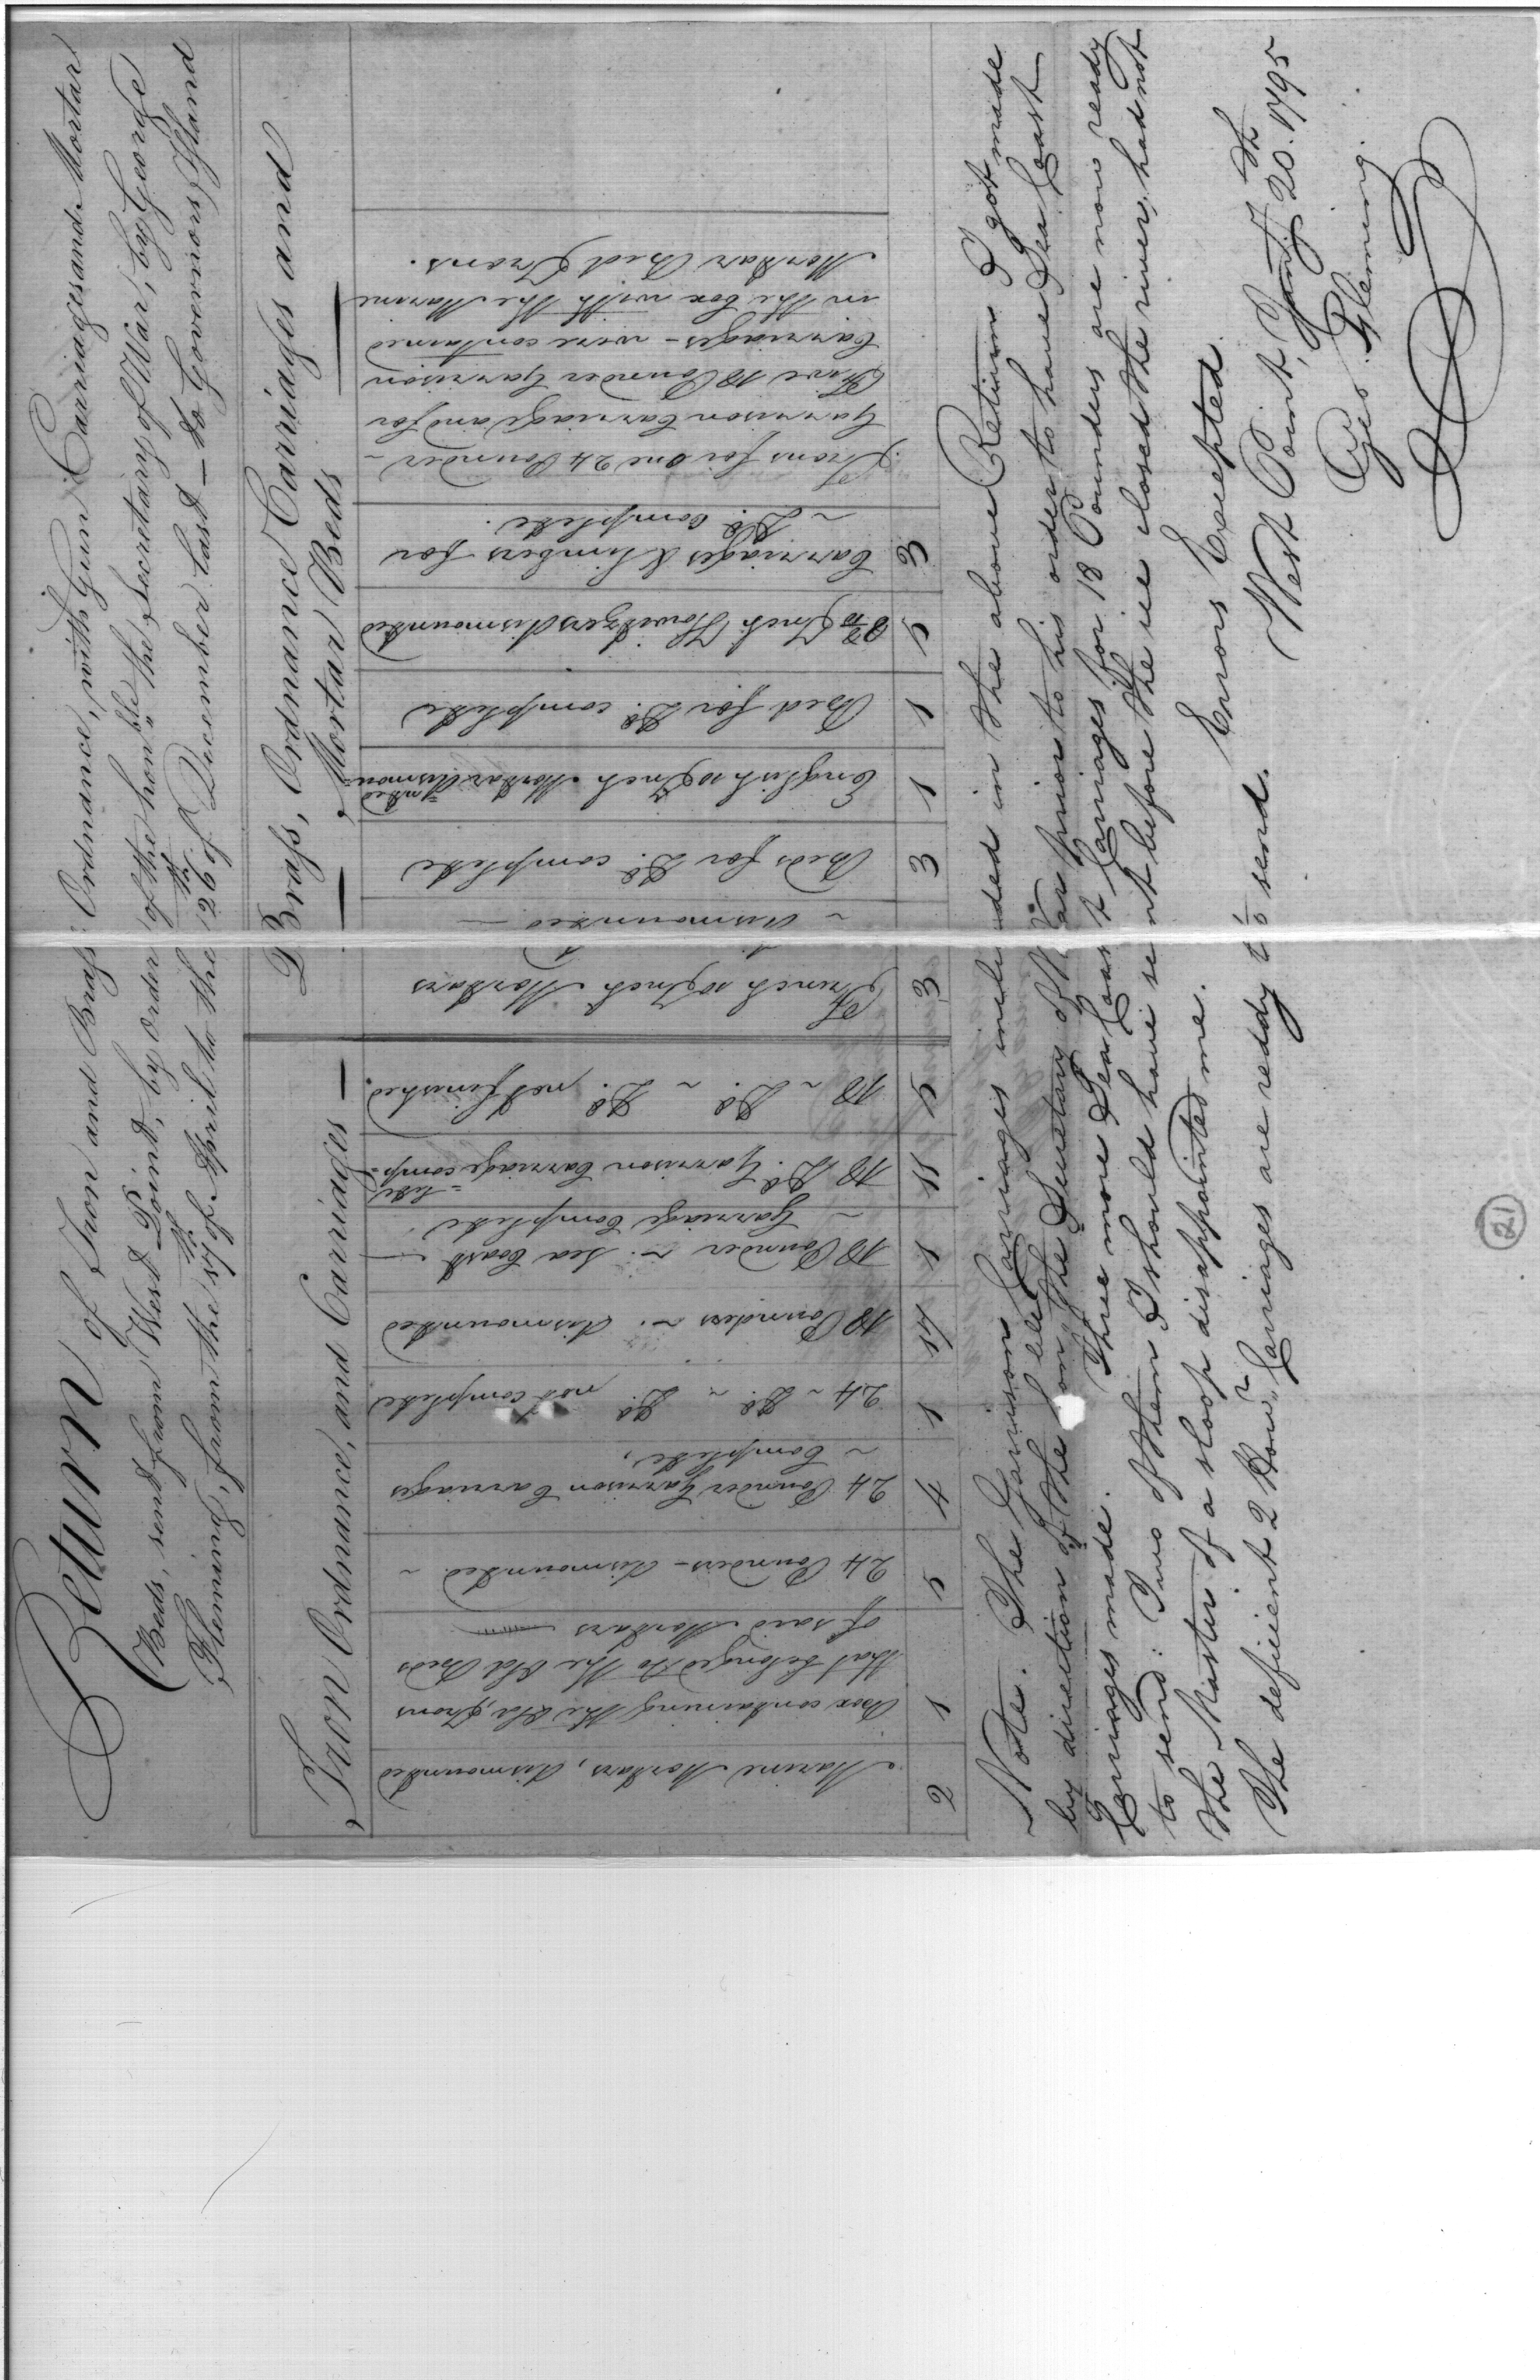 Return of Iron and Brass Ordnance, with Gun Carriages and Mortar
Beds, sent from West Point, by order of the hon.ble the Secretary of War, by George
Fleming, from the 17th of April to the 26th of December last — to Governors Island
Iron Ordnance, and Carriages —
Brass, Ordnance Carriages and
— Mortar Beds —
2 Marine Mortars, dismounted
1 Box containing the Old Irons
that belonged to the Old Beds
of said Mortars
5 24 Pounders – dismounted ~
4 24 Pounder Garrison Carriages
~ Complete,
1 24 ~ Do. ~ Do. not complete
18 Pounders ~ dismounted
1 18 Pounder ~ Sea Coast —
~ Carriage Complete
11 18 Do. Garrison Carriage comp=
=lete
5 18 ~ Do. ~ Do. not finished.
3 French 10 Inch Mortars
~ dismounted —
3 Beds for Do. complete
1 English 10 Inch Mortar dismou=
=nted
1 Bed for Do. complete
5 Inch Howitzers dismounted
3 Carriages & Limbers for
~ Do. Complete.
Irons for one 24 Pounder ~
Garrison Carriage and for
Five 18 Pounder Garrison
Carriages – were contained
in the box with the Marine
Mortar Bed Irons.
Note. The Garrison Carriages included in the above Return I got made
by direction of the hon.ble the Secretary of War prior to his order to have Sea Coast
Carriages made. Three more Sea Coast Carriages for 18 Pounders are now ready
to send: Two of them I should have sent before the ice closed the river, had not
the Master of a sloop disappointed me.
The deficient 2 How.r Carriages are reddy to send.
Errors Excepted.
West Point, Jany 20.th 1795
Geo. Fleming.
(21)